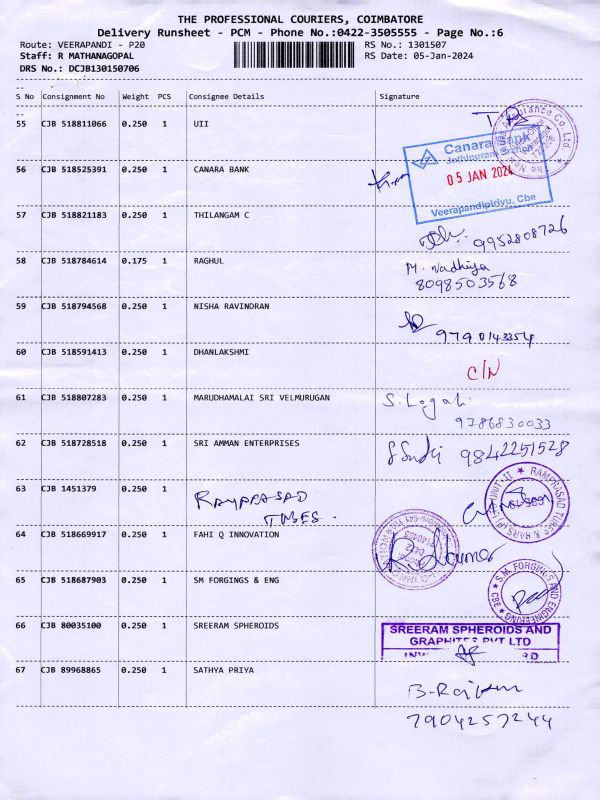 THE PROFESSIONAL COURIERS, COIMBATORE
Delivery Runsheet - PCM - Phone No.:0422-3505555 - Page No.:6
Route: VEERAPANDI - P20 RS No.: 1301507
Staff: R MATHANAGOPAL RS Date: 05-Jan-2024
DRS No.: DCJB130150706
S No Consignment No Weight PCS Consignee Details Signature
55 CJB 518811066 0.250 1 UII
Canara Bank
Jothipuram Branch
56 CJB 518525391 0.250 1 CANARA BANK
05 JAN 2024
Veerapandipiriyu, Cbe
57 CJB 518821183 0.250 1 THILANGAM C
9952808726
58 CJB 518784614 0.175 1 RAGHUL M. Nadhiya
8098503568
59 CJB 518794568 0.250 1 NISHA RAVINDRAN
9790143354
60 CJB 518591413 0.250 1 DHANLAKSHMI
C/N
61 CJB 518807283 0.250 1 MARUDHAMALAI SRI VELMURUGAN S. Logah
9786830033
62 CJB 518728518 0.250 1 SRI AMMAN ENTERPRISES 9842251528
63 CJB 1451379 0.250 1 RAMPRASAD
TUBES.
RAMPRASAD TUBES & BARS (P) UNIT-II
64 CJB 518669917 0.250 1 FAHI Q INNOVATION
65 CJB 518687903 0.250 1 SM FORGINGS & ENG
S.M. FORGINGS AND ENGINEERING CBE
66 CJB 80035100 0.250 1 SREERAM SPHEROIDS
SREERAM SPHEROIDS AND
GRAPHITES PVT LTD
67 CJB 89968865 0.250 1 SATHYA PRIYA
7904257244